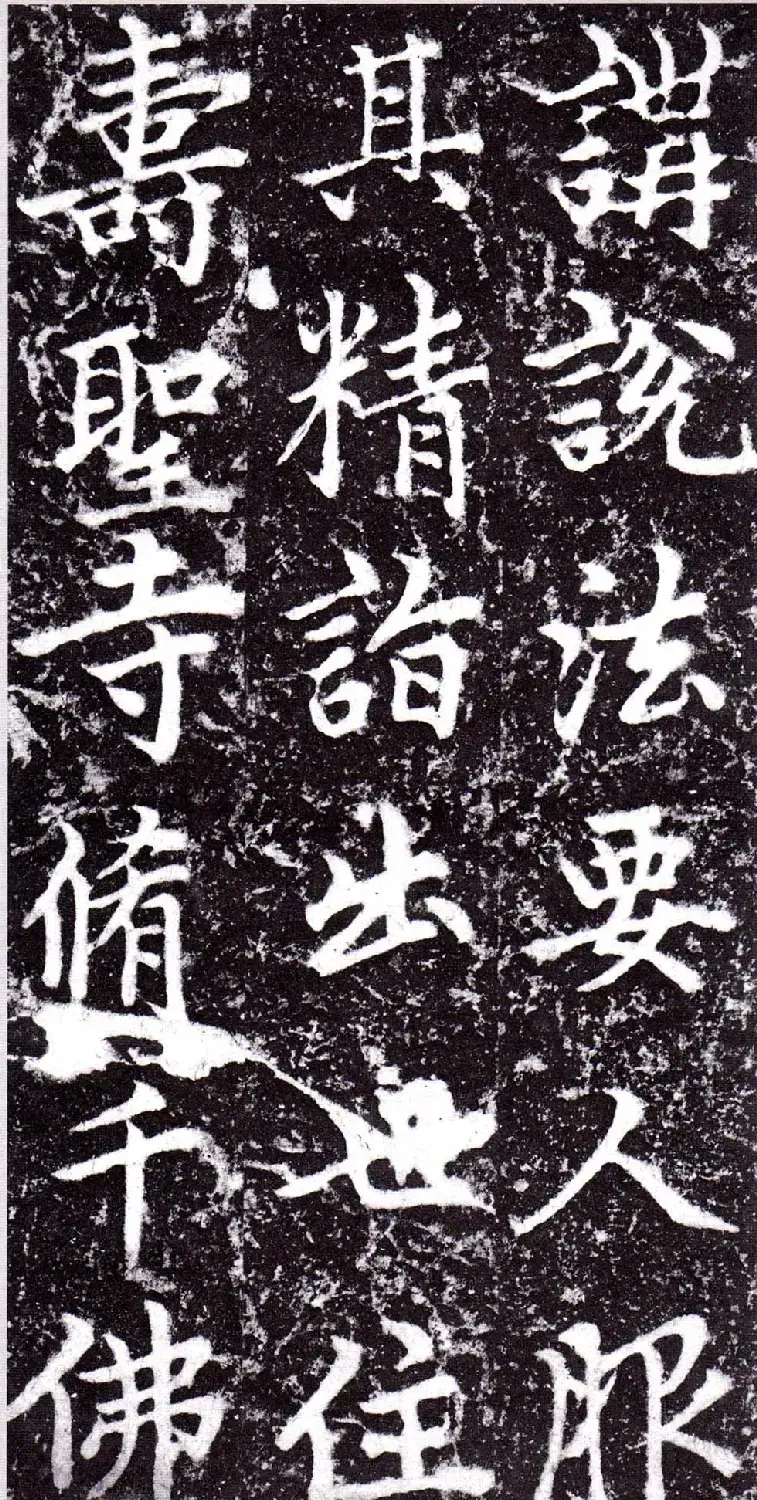 講說法要人服
其精詣出世住
壽聖寺脩千佛